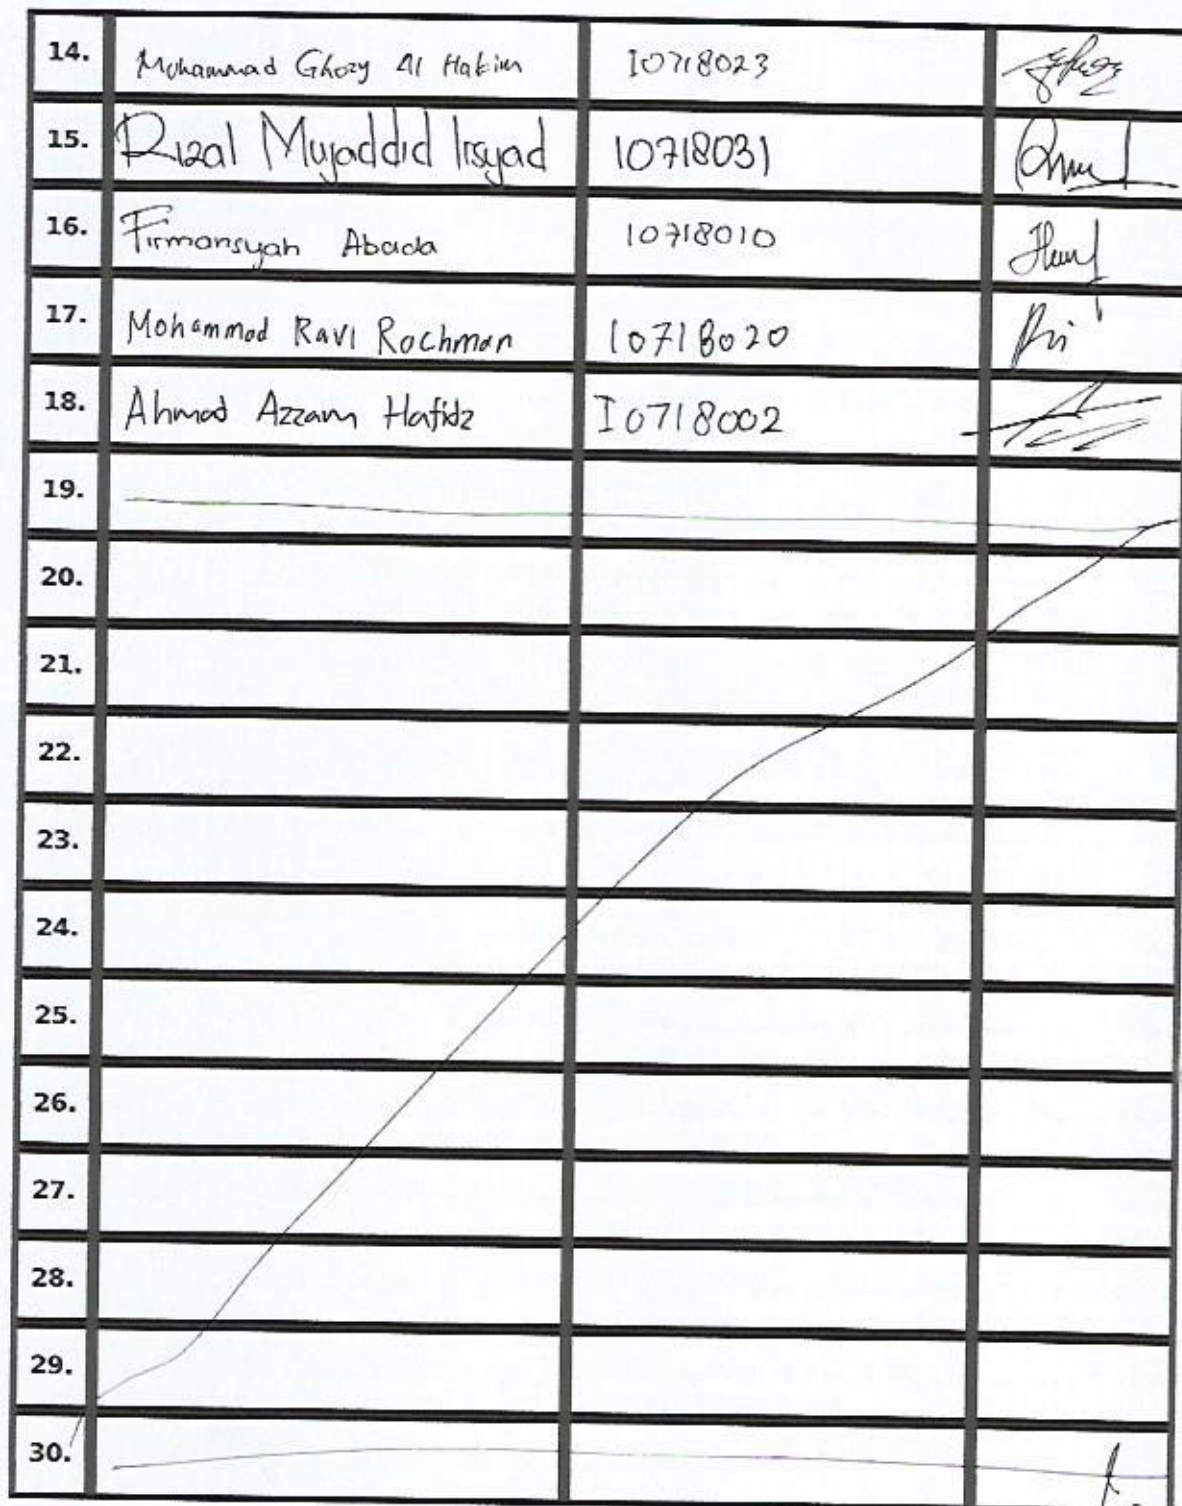 14. Mohammad Ghozy Al Hakim I0718023
15. Rizal Mujaddid Irsyad I0718031
16. Firmansyah Abada I0718010
17. Mohammad Ravi Rochman I0718020
18. Ahmad Azzam Hafidz I0718002
19.
20.
21.
22.
23.
24.
25.
26.
27.
28.
29.
30.